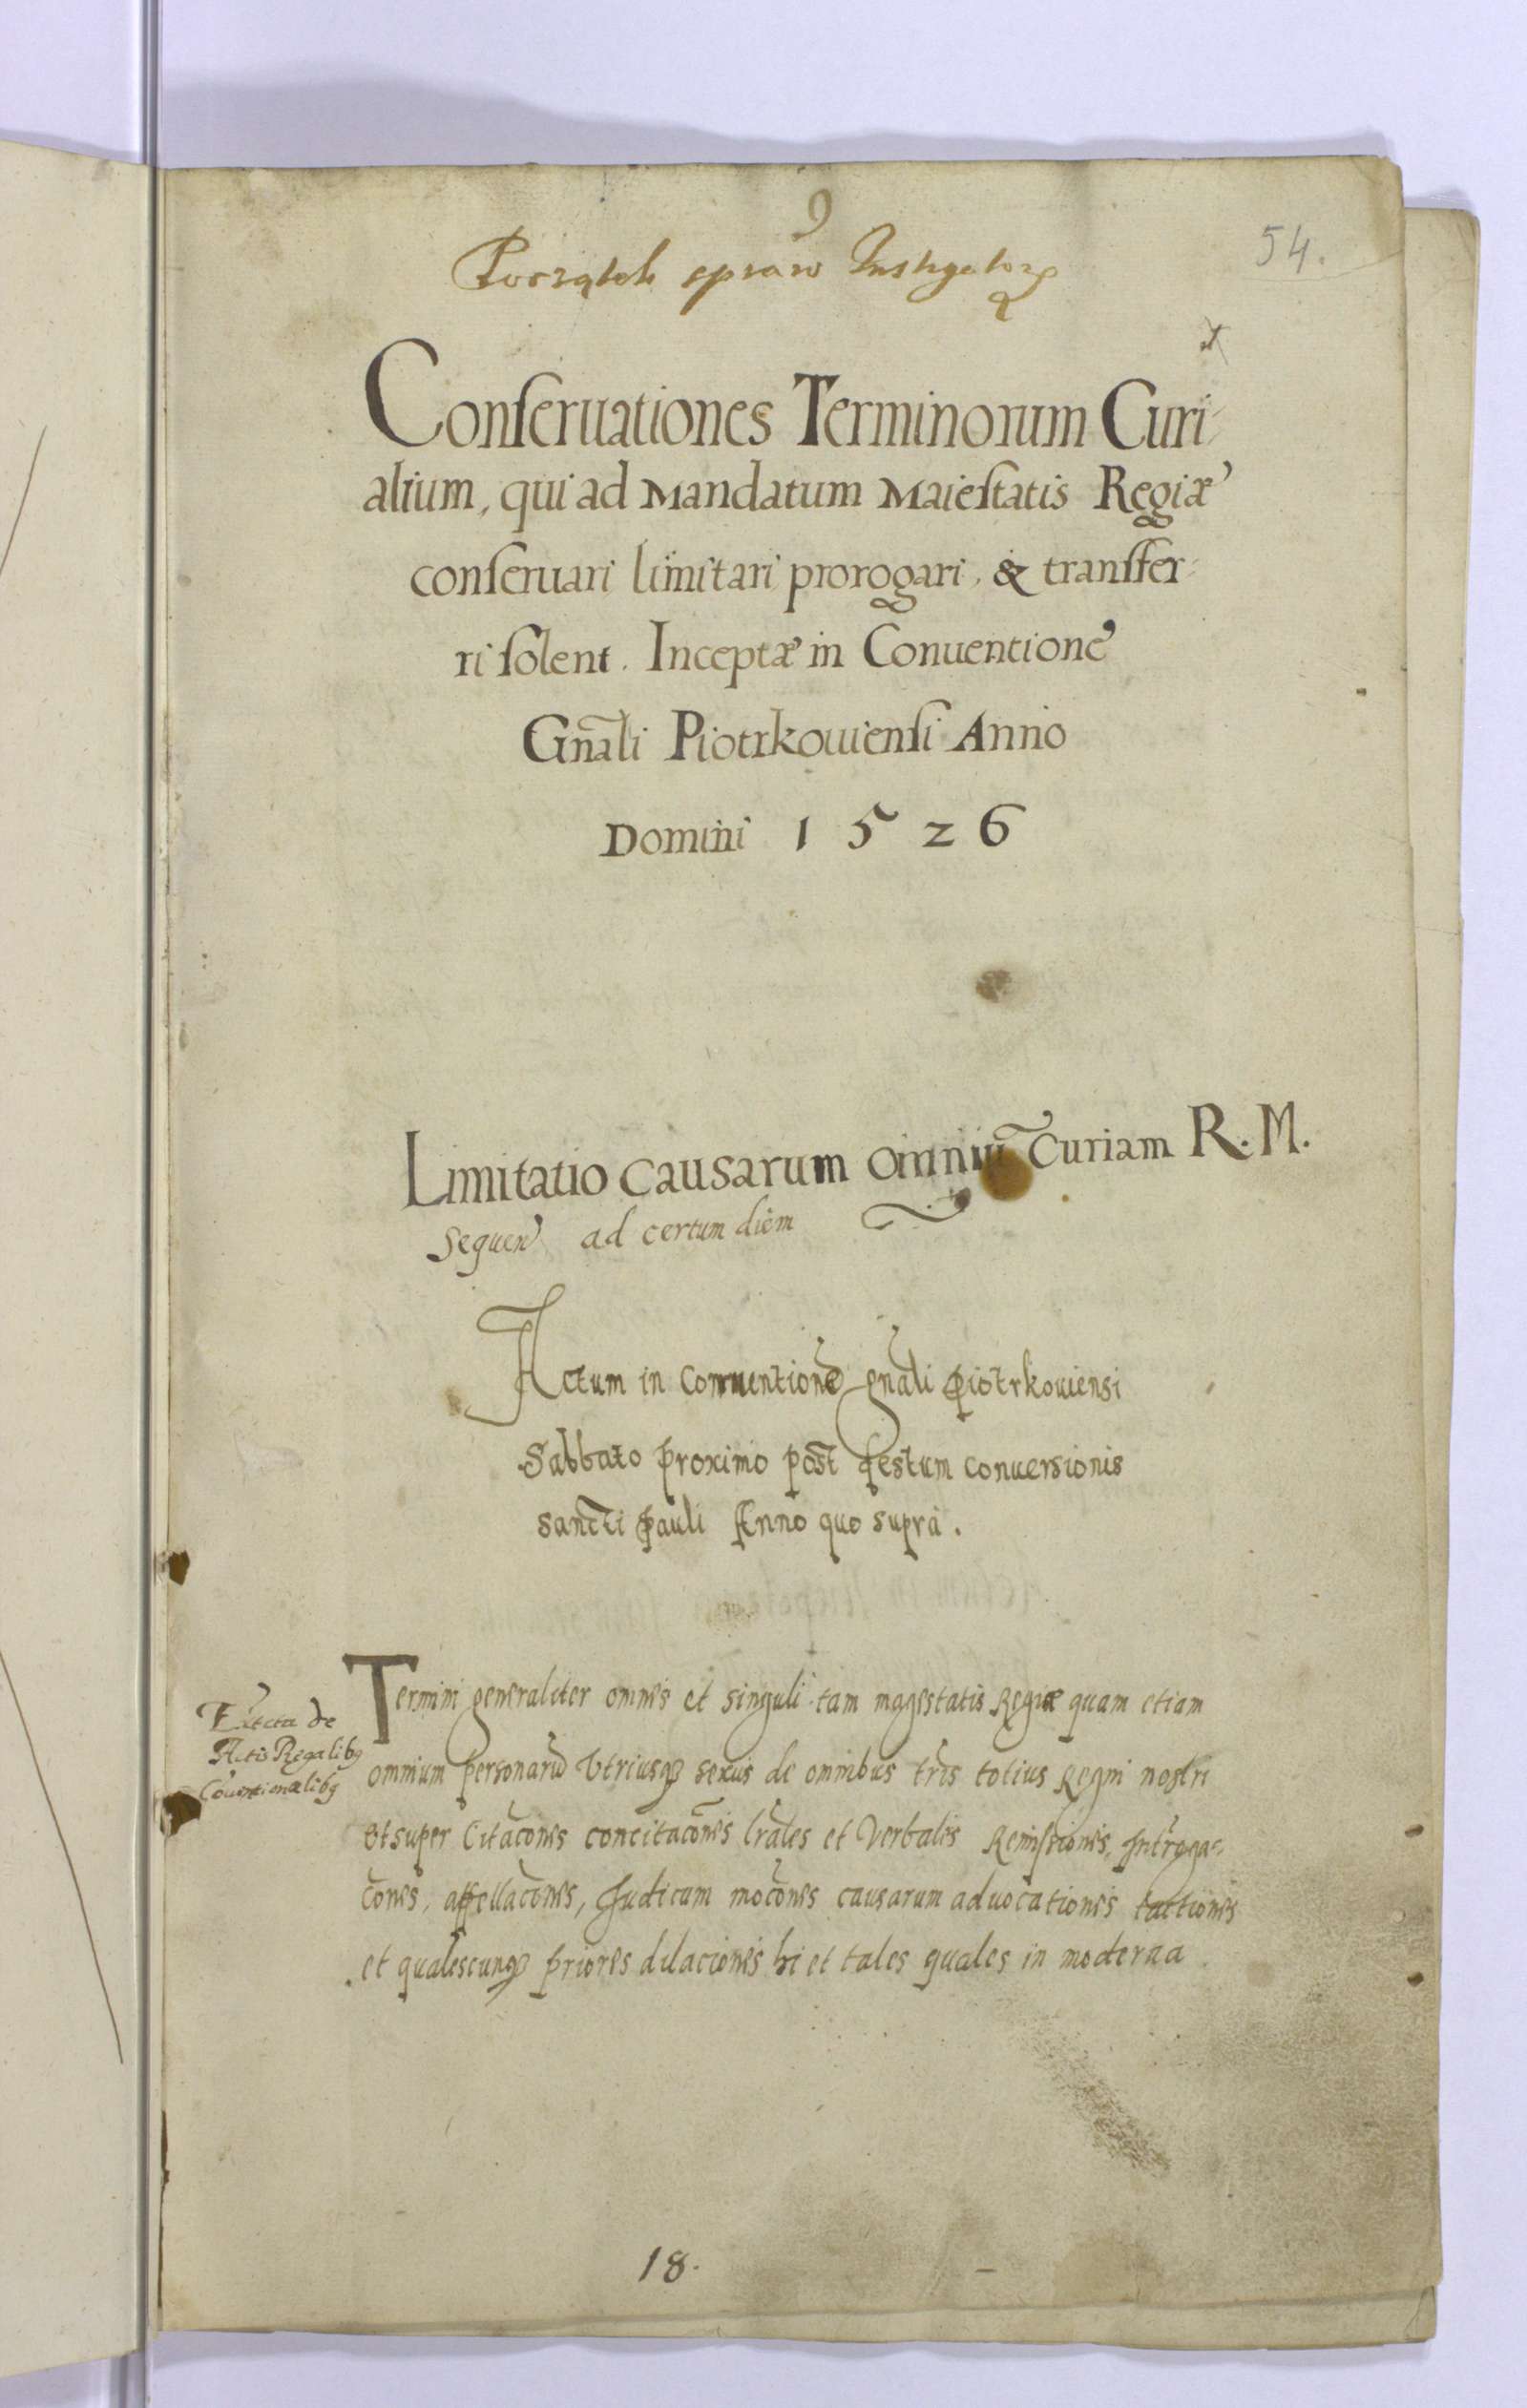 9
54.
Początek spraw Instygator
Conſeruationes Terminorum Curi-
alium, qui ad Mandatum Maieſtatis Regiæ
conſeruari limitari prorogari, & transfer-
ri ſolent. Inceptæ in Conuentione
Gn̄ali Piotrkouienſi Anno
Domini 1526
Limitatio causarum omniū Curiam R. M.
Sequen ad certum diem
Actum in Conuentione gn̄ali Piotrkouiensi
Sabbato proximo post festum conuersionis
sancti Pauli Anno quo supra.
Termini generaliter omnes et singuli tam magestatis Regiæ quam etiam
de
Actis Regalibꝫ
Cōuentionalibꝫ
omnium personarū vtriusqꝫ sexus de omnibus tr̄is totius Regni nostri
et super Citac̄ones concitac̄ones lr̄ales et verbales Remissiones, Intr̄oga-
c̄ones, appellac̄ones, Judicum moc̄ones causarum aduocationes
et qualescunqꝫ priores dilaciones hi et tales quales in moderna
18.